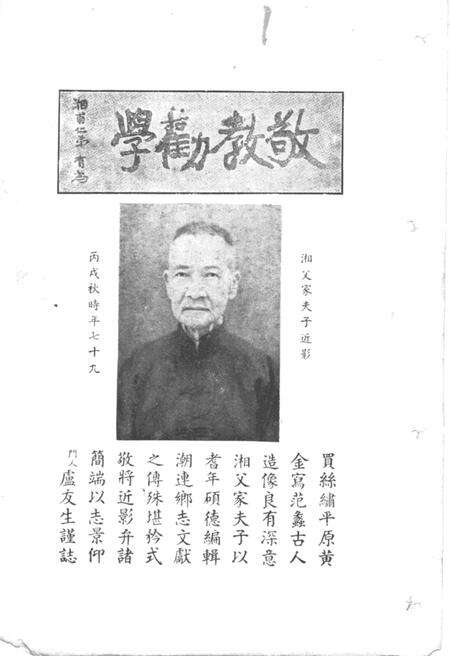 敬教勸學
湘甫仁弟有為
湘父家夫子近影
丙戌秋時年七十九
買絲繡平原黃
金寫范蠡古人
造像良有深意
湘父家夫子以
耆年碩德編輯
潮連鄉志文獻
之傳殊堪矜式
敬將近影弁諸
簡端以志景仰
門人盧友生謹誌